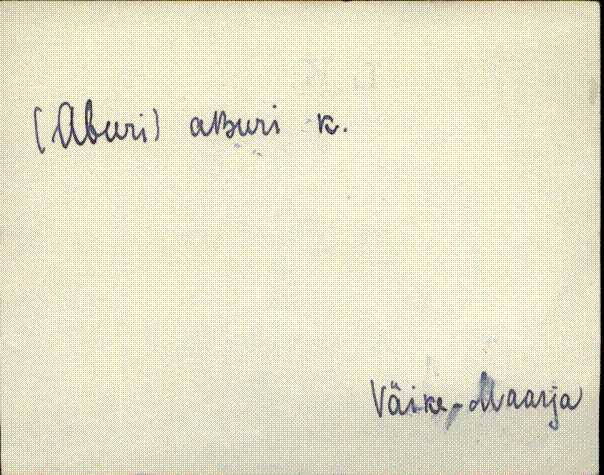 (Aburi) aʙuri k.
Väike-Maarja